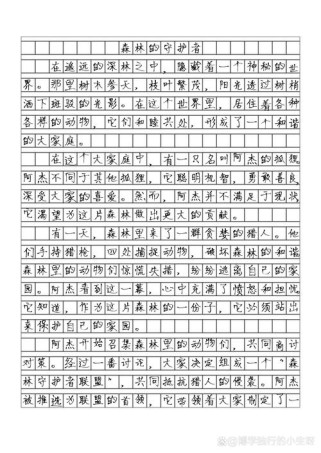 森林的守护者
在遥远的深林之中，隐藏着一个神秘的世
界。那里树木参天，枝叶繁茂，阳光透过树梢
洒下斑驳的光影。在这个世界里，居住着各种
各样的动物，它们和睦共处，形成了一个和谐
的大家庭。
在这个大家庭中，有一只名叫阿杰的狐狸
阿杰不同于其他狐狸，它聪明机智，勇敢善良，
深受大家的喜爱。然而，阿杰并不满足于现状
它渴望为这片森林做出更大的贡献。
有一天，森林里来了一群贪婪的猎人。他
们手持猎枪，四处捕捉动物，破坏森林的和谐
森林里的动物们惊慌失措，纷纷逃离自己的家
园。阿杰看到这一幕，心中充满了愤怒和担忧
它知道，作为这片森林的一份子，它必须站出
来保护自己的家园。
阿杰开始召集森林里的动物们，共同商讨
对策。经过一番讨论，大家决定组成一个“森
林守护者联盟”，共同抵抗猎人的侵袭。阿杰
被推选为联盟的首领，它带领着大家制定了一